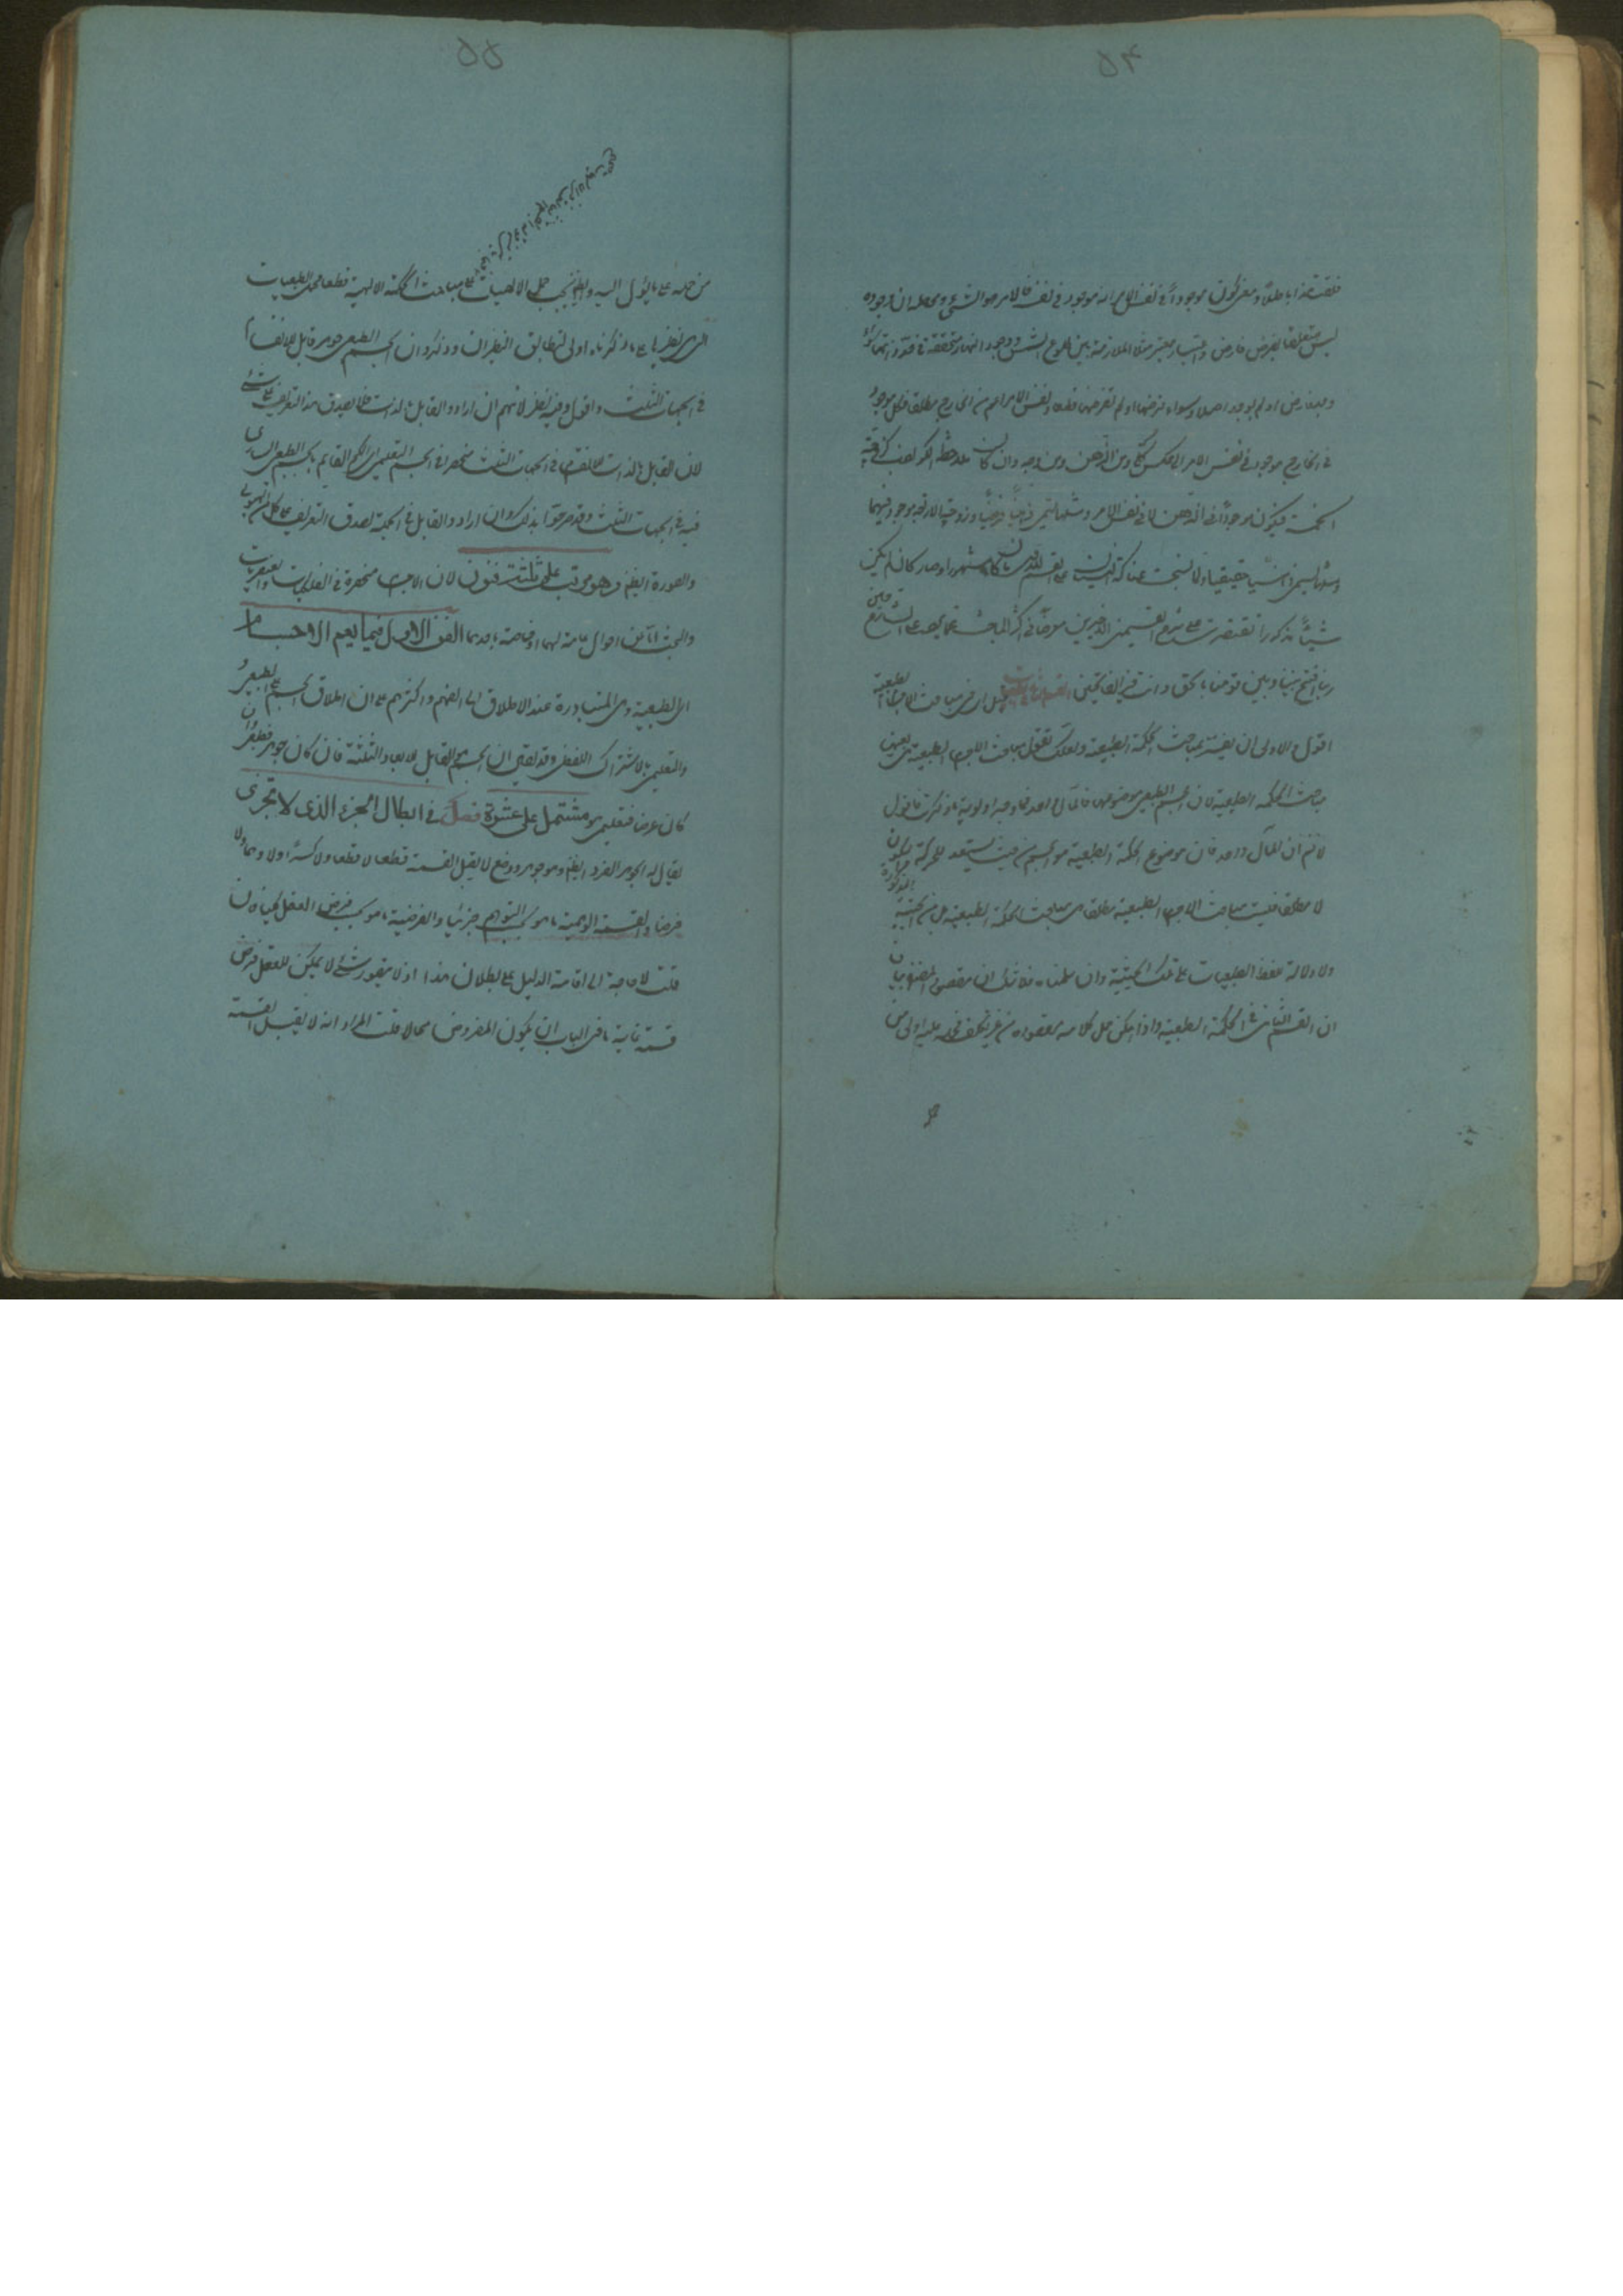 ۵۴
فلقت هذا باطلا و معنى كون موجودا فى نفس الامر انه موجود فى نفسه فالامر هو الشىء ومحصله ان وجوده
ليس متعلقا بفرض فارض واعتبار معتبر مثلا الملازمة بين طلوع الشمس ووجود النهار متحققة فى حد ذاتها سواء
وجد فارض او لم يوجد اصلا وسواء فرضها او لم تفرضها قطعا ونفس الامر اعم من الخارج مطلقا فكل موجود
فى الخارج موجود فى نفس الامر بلا عكس كلى ومن الذهن من وجه لامكان ملاحظة الكواذب كزوجية
الخمسة فيكون موجودا فى الذهن لا فى نفس الامر ومثلها يسمى ذهنيا فرضيا وزوجية الاربعة موجودة فيهما
ومثلها يسمى ذهنيا حقيقيا ولا نسجت عناكب النسيان على القسم الاول كان لم يكن
شيئا مذكورا اقتصرت على شرح القسمين الاخيرين معرضا فى اكثر المباحث عما يبحث عنه الشارحين
ربنا افتح بيننا وبين قومنا بالحق وانت خير الفاتحين القسم الثانى فى الطبيعيات قيل اى فى مباحث الاجسام الطبيعية
اقول الاولى ان يفسر بمباحث الحكمة الطبيعية ولعلك تقول مباحث الاجسام الطبيعية هى بعينها
مباحث الحكمة الطبيعية لان الجسم الطبيعى موضوعها فالمآل الى واحد فما وجه اولوية ما ذكرت فاقول
لا نم ان المآل واحد فان موضوع الحكمة الطبيعية هو الجسم من حيث يستعد للحركة والسكون
لا مطلقا فليست مباحث الاجسام الطبيعية مطلقا هى مباحث الحكمة الطبيعية بل من الحيثية المذكورة
ولا دلالة للفظ الطبيعيات على تلك الحيثية وان سلمنا فلا شك ان مقصود المص بيان
ان القسم الثانى فى الحكمة الطبيعية واذا امكن حمل كلامه على مقصوده من غير تكلف فحمله عليه اولى من
۵۵
من حمله على ما يؤل اليه وايضا يجب حمل الالهيات على مباحث الحكمة الالهية قطعا فحمل الطبيعيات
التى هى نظيرها على ما ذكرناه اولى لتطابق النظيران وذكروا ان الجسم الطبيعى جوهر قابل للانقسام
فى الجهات الثلث واقول وفيه نظر لانهم ان ارادوا القابل بالذات فلا يصدق هذا التعريف على شئ
لان القابل بالذات للانقسام فى الجهات الثلث منحصر فى الجسم التعليمى اى الكم القايم بالجسم الطبيعى السارى
فيه فى الجهات الثلث وقد صرحوا بذلك وان ارادوا القابل فى الجملة لصدق التعريف على كل من الهيولى
والصورة ايضا وهو مرتب على ثلثة فنون لان الاجسام منحصرة فى الفلكيات والعنصريات
والبحث اما عن احوال عامة لهما او خاصة باحدهما الفن الاول فيما يعم الاجسام
اى الطبيعية وهى المتبادرة عند الاطلاق الى الفهم واكثرهم على ان اطلاق الجسم على الطبيعى
والتعليمى بالاشتراك اللفظى وقد يقال ان الجسم هو القابل للابعاد الثلثة فان كان جوهرا فطبيعى وان
كان عرضا فتعليمى وهو مشتمل على عشرة فصل فى ابطال الجزء الذى لا يتجزى
يقال له الجوهر الفرد ايضا وهو جوهر ذو وضع لا يقبل القسمة قطعا لا قطعا ولا كسرا ولا وهما ولا
فرضا والقسمة الوهمية ما هو بحسب التوهم جزئيا والفرضية ما هو بحسب فرض العقل كليا فان
قلت لا حاجة الى اقامة الدليل على بطلان هذا اذ لا يتصور شئ لا يمكن للعقل فرض
قسمته غاية ما فى الباب ان يكون المفروض محالا قلت المراد انه لا يقبل القسمة